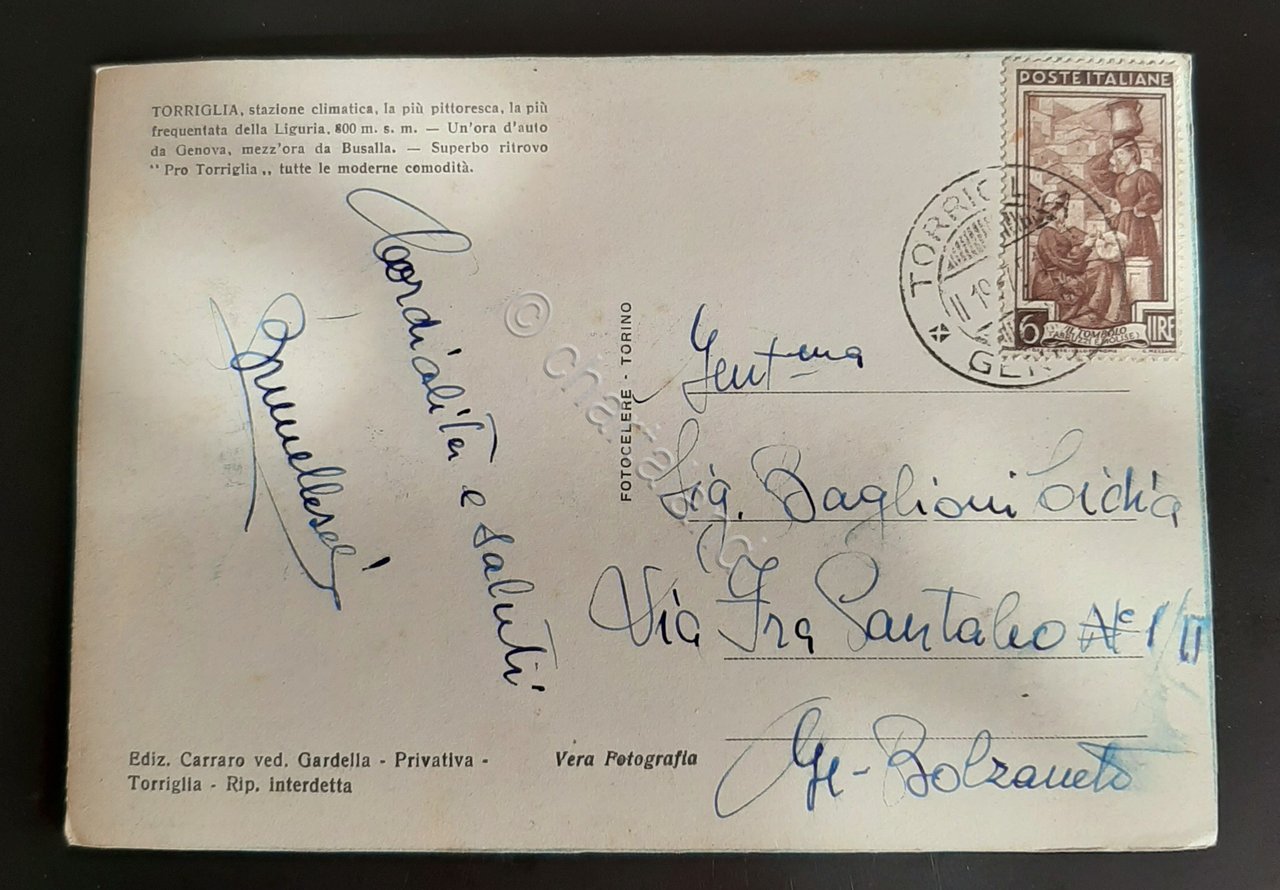 TORRIGLIA, stazione climatica, la più pittoresca, la più
frequentata della Liguria, 800 m. s. m. — Un'ora d'auto
da Genova, mezz'ora da Busalla. — Superbo ritrovo
" Pro Torriglia „ tutte le moderne comodità.
Cordialità e saluti
FOTOCELERE - TORINO
POSTE ITALIANE
6 LIRE
IL TOMBOLO
(ABRUZZI E MOLISE)
TORRIGLIA
Gent.ma
Sig. Baglioni Lidia
Via Fra Pantaleo N° 1/II
Ge - Bolzaneto
Ediz. Carraro ved. Gardella - Privativa -
Torriglia - Rip. interdetta
Vera Fotografia